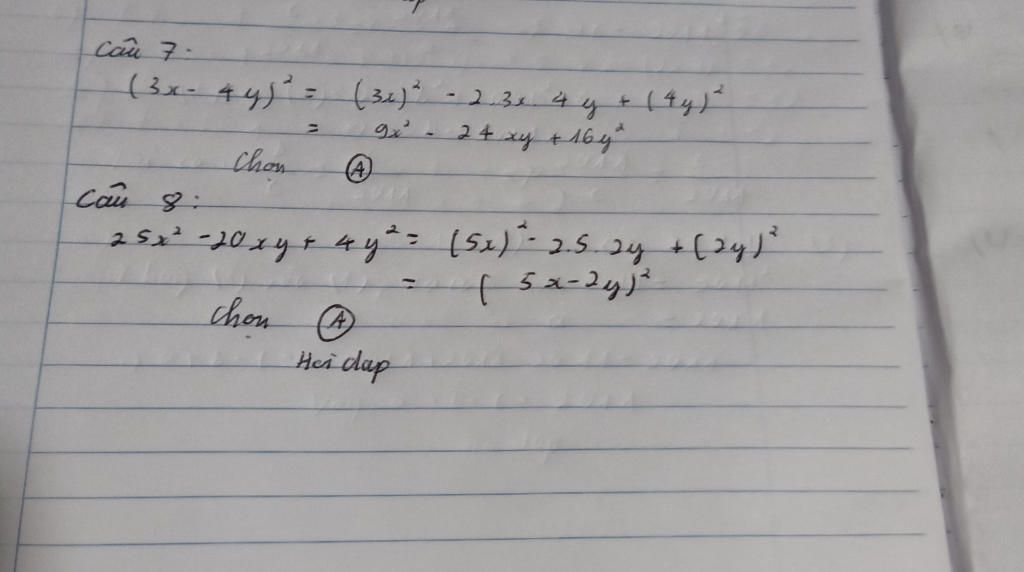 Câu 7:
(3x - 4y)² = (3x)² - 2.3x.4y + (4y)²
= 9x² - 24xy + 16y²
Chọn A
Câu 8:
25x² - 20xy + 4y² = (5x)² - 2.5.2y + (2y)²
= (5x - 2y)²
Chọn A
Hoi dap